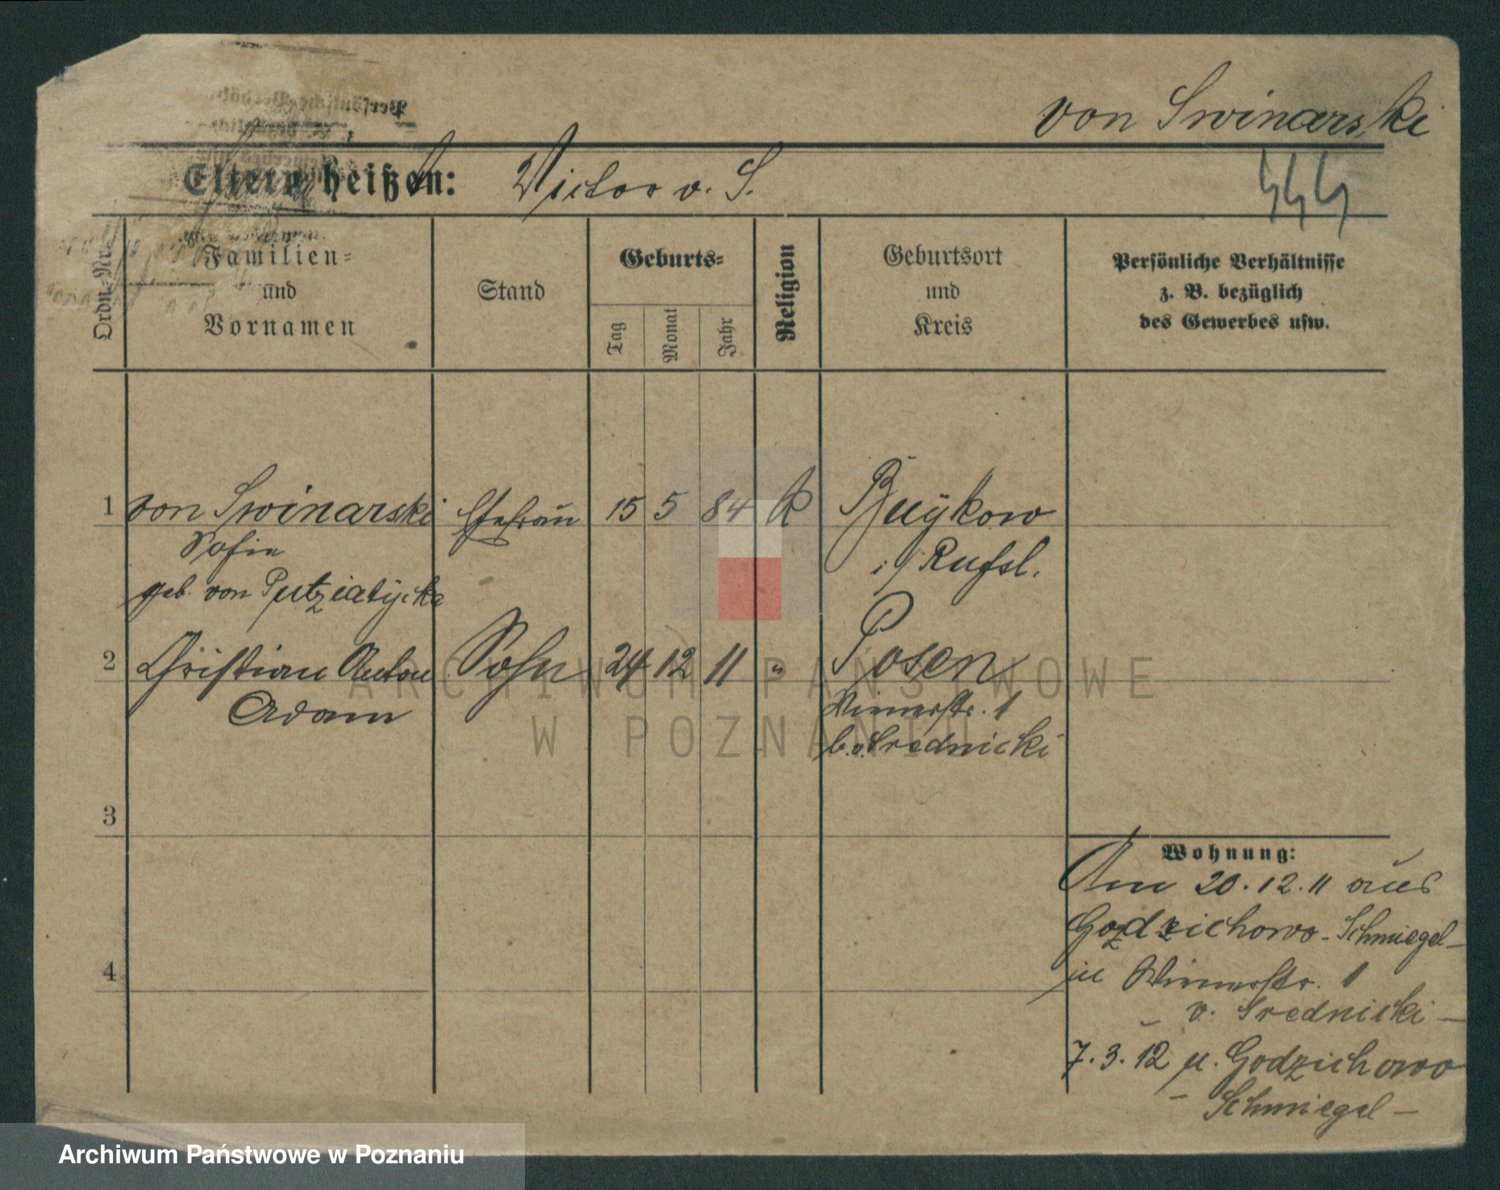 von Swinarski
Eltern heißen: Victor v. S.
Ordn.-Nr.
Familien-
und
Vornamen
Stand
Geburts-
Tag
Monat
Jahr
Religion
Geburtsort
und
Kreis
Persönliche Verhältnisse
z. B. bezüglich
des Gewerbes usw.
1 von Swinarski Ehefrau 15 5 84 k Buykow
Sofie i/ Rußl.
geb. von Putziatycka
2 Christian Anton Sohn 24 12 11 " Posen
Adam
1
b. v. Srednicki
3
Wohnung:
Am 20.12.11 aus
Godzichowo - Schmiegel -
in 1
v. Srednicki -
4
7.3.12 n. Godzichowo
- Schmiegel -
ARCHIWUM PAŃSTWOWE
W POZNANIU
Archiwum Państwowe w Poznaniu